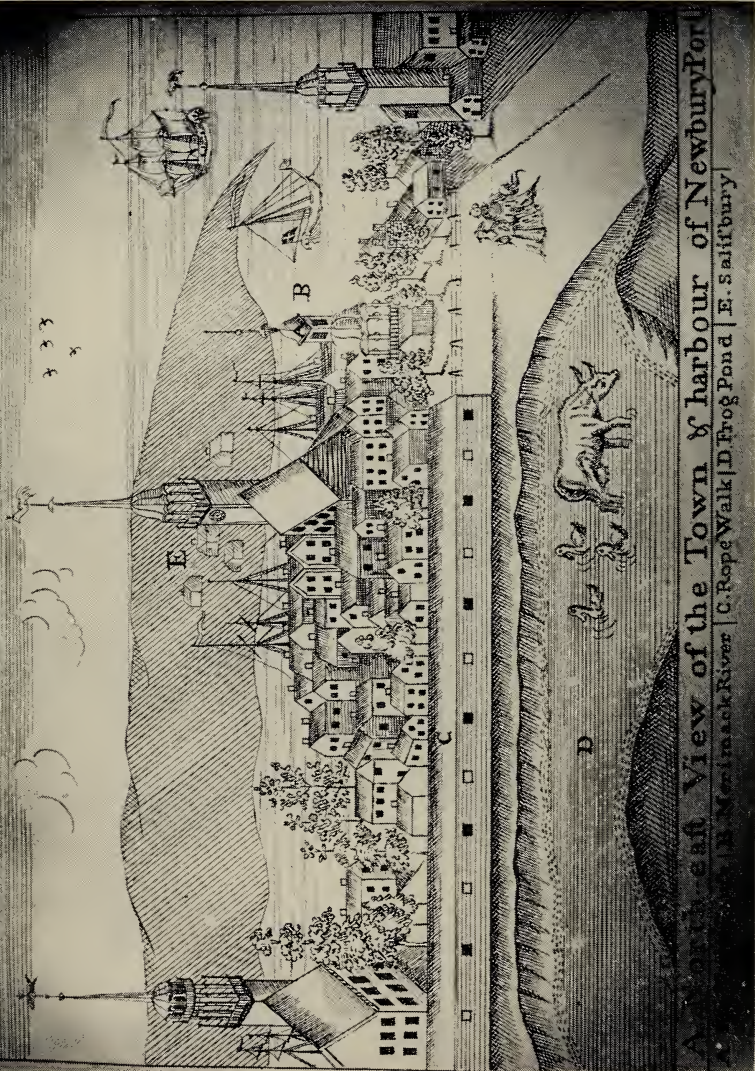 B
E
C
D
North-eaſt View of the Town & harbour of NewburyPort
B. Merimack River | C. Rope Walk | D. Frog Pond | E. Saliſbury |